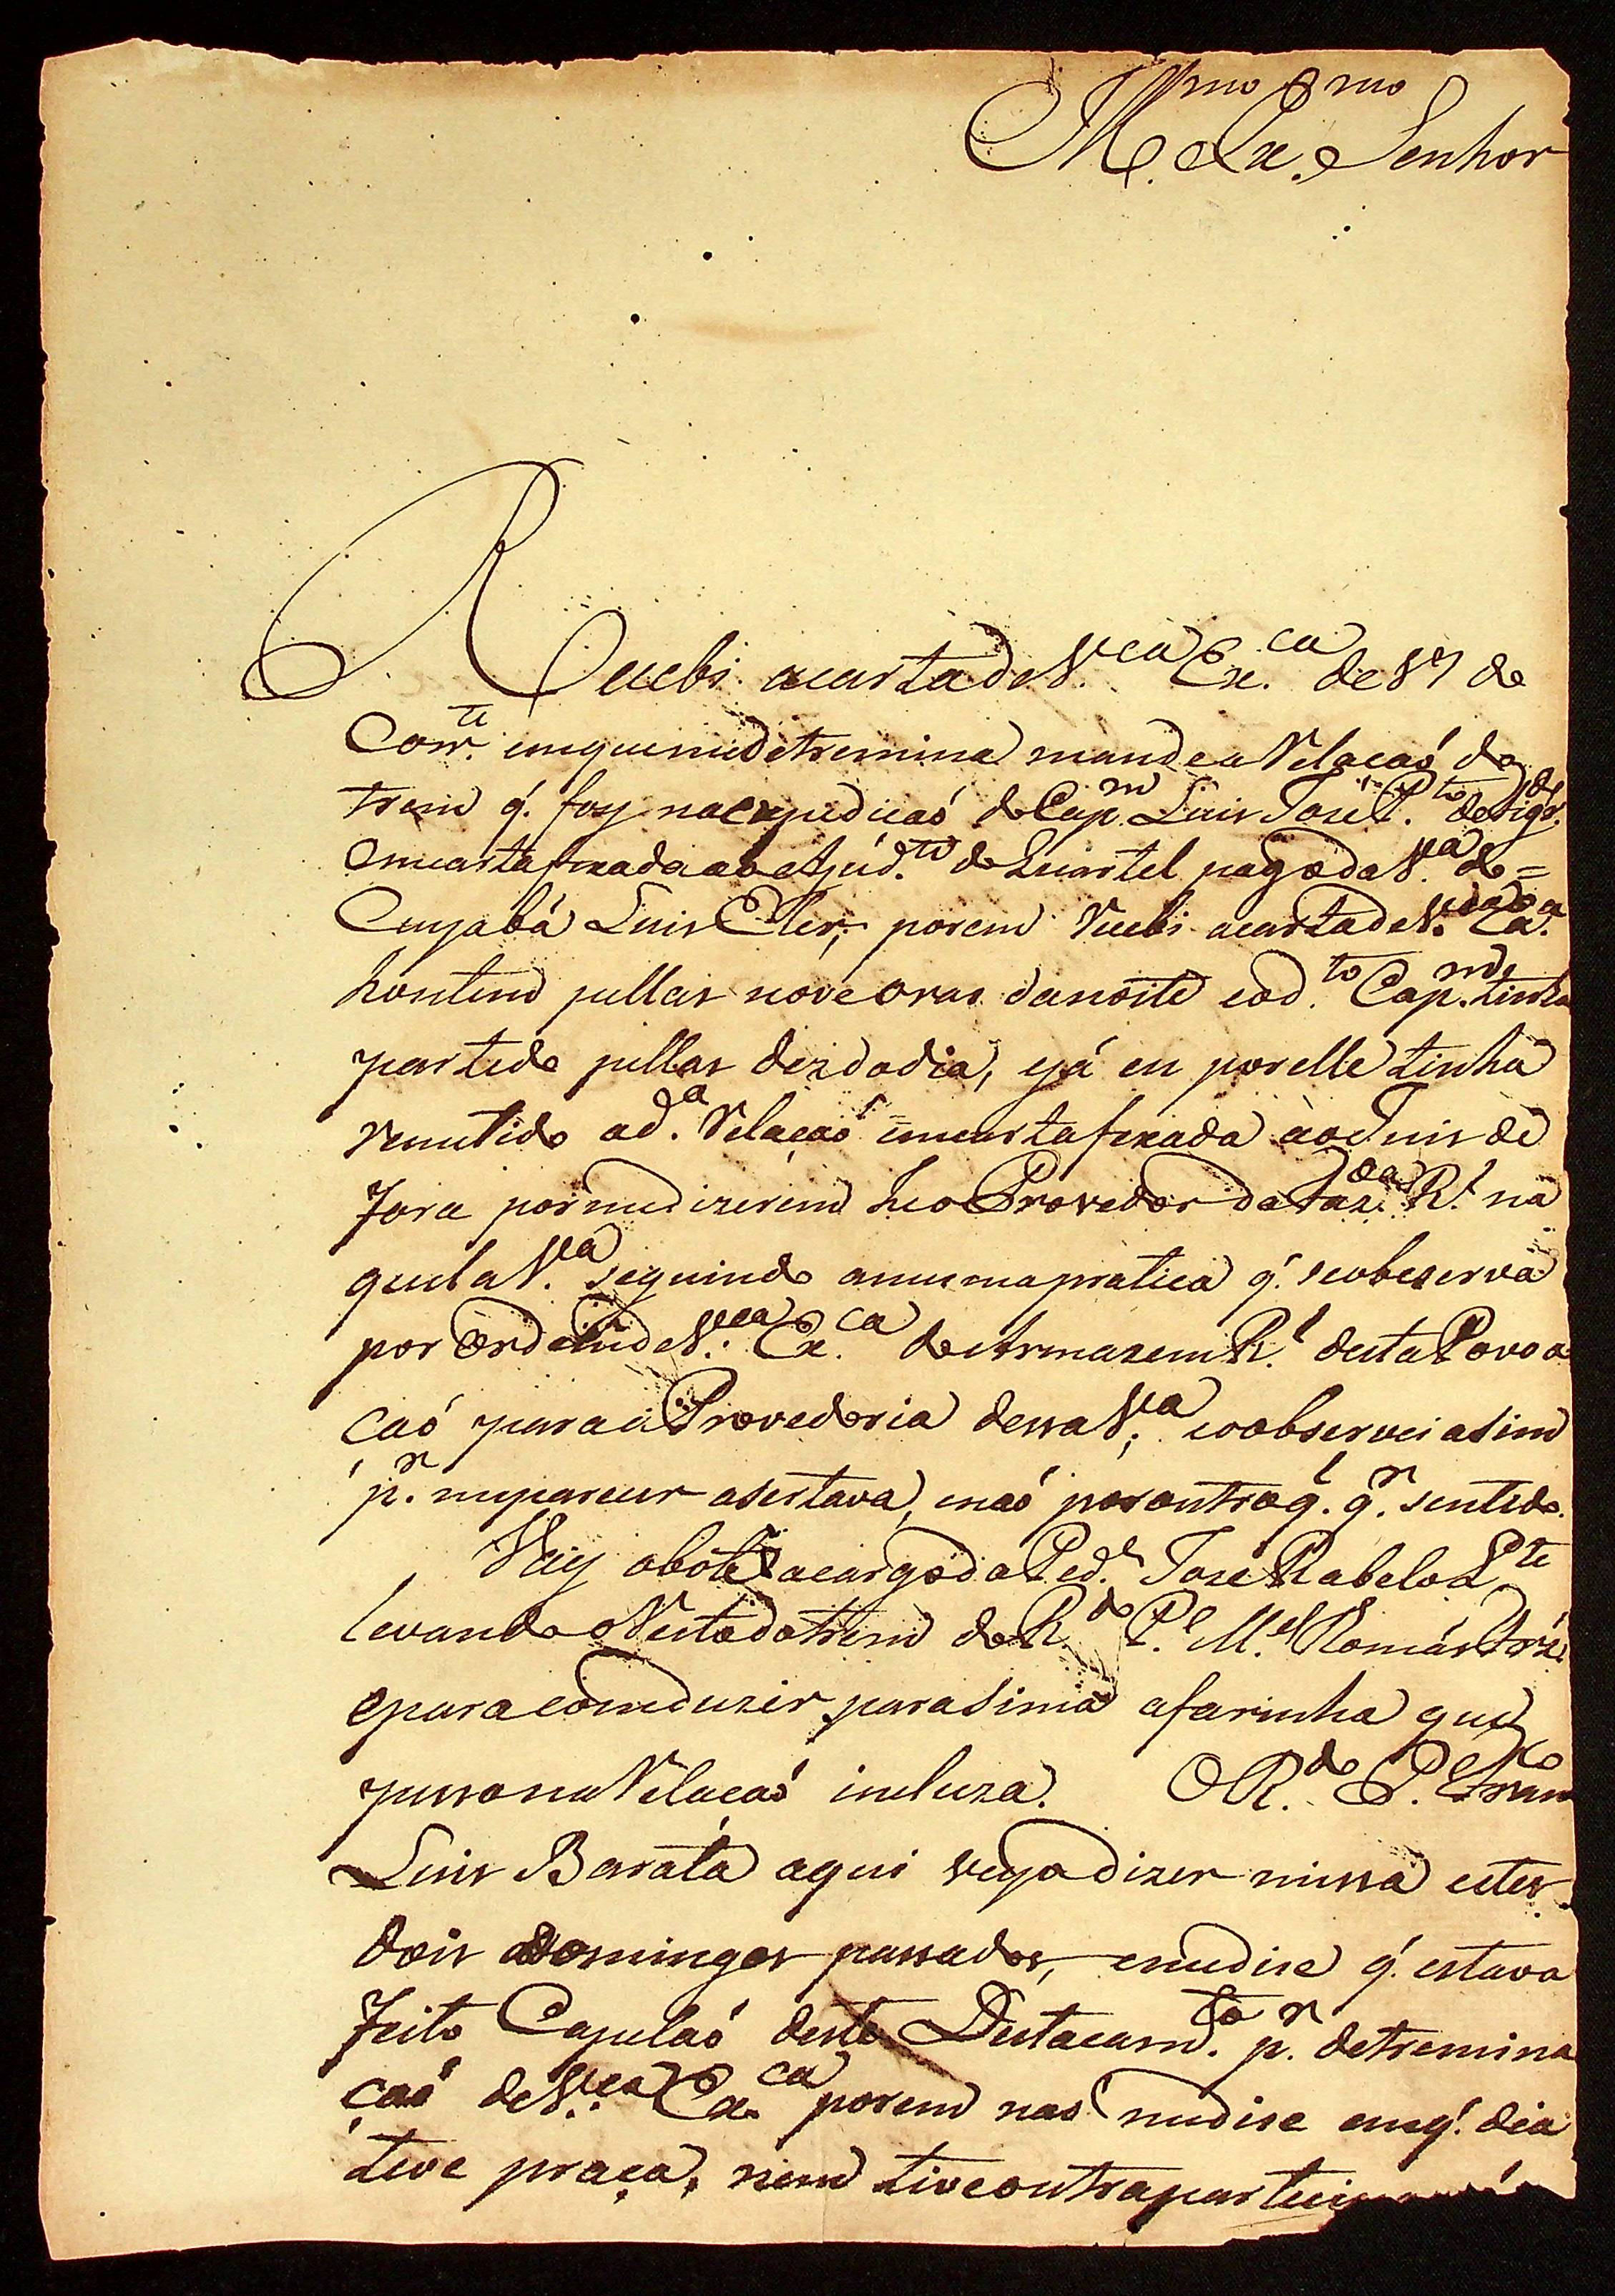 Ill.mo Ex.mo Senhor
Recebi acartade V.ca Ex.ca de 17 de
Corr.te emquemedetremina mande a Relacaó do
trem q'. foy naexpedicaó do Cap.m Luis José P.to de
emcartafexada ao Ajud.te do Quartel pago da V.a do=
Cuyabá Luis Eler, porem recebi acartade V.
hontem pellas nove oras danoite eod.to Cap.m tinha
partido pellas dezdodia, ejá eu porelle tinha
remetido ad.a Relaçaó emcartafexada aoJuis de
Fora pormedizerem heoProvedor daFaz.da R.l na
quela V.a seguindo amesmapratica q'. seobeserva
por Ordem de V.ca Ex.ca do Armazem R.l destaPovoa
çaó paraaProvedoria dessa V.a, eoobservei asim
p.r meparecer asertava, enaó poroutroq.l q.r sentido.
Vay obote acargodo Ped.e José Rabelo L.te
levando o Restodotrem do R.do P.e M.el Romás
eparacomduzir parasima afarinha que
pessona Relaçaó incluza. O R.do P.e Fran.co
Luis Barata aqui veyodizer missa estes
dois Domingos passados, emedise q'. estava
feito Capelaó deste Destacam.to p.r detremina
çaó de V.ca Ex.ca porem naó medise emq'. dia
teve praça, nem tiveoutra